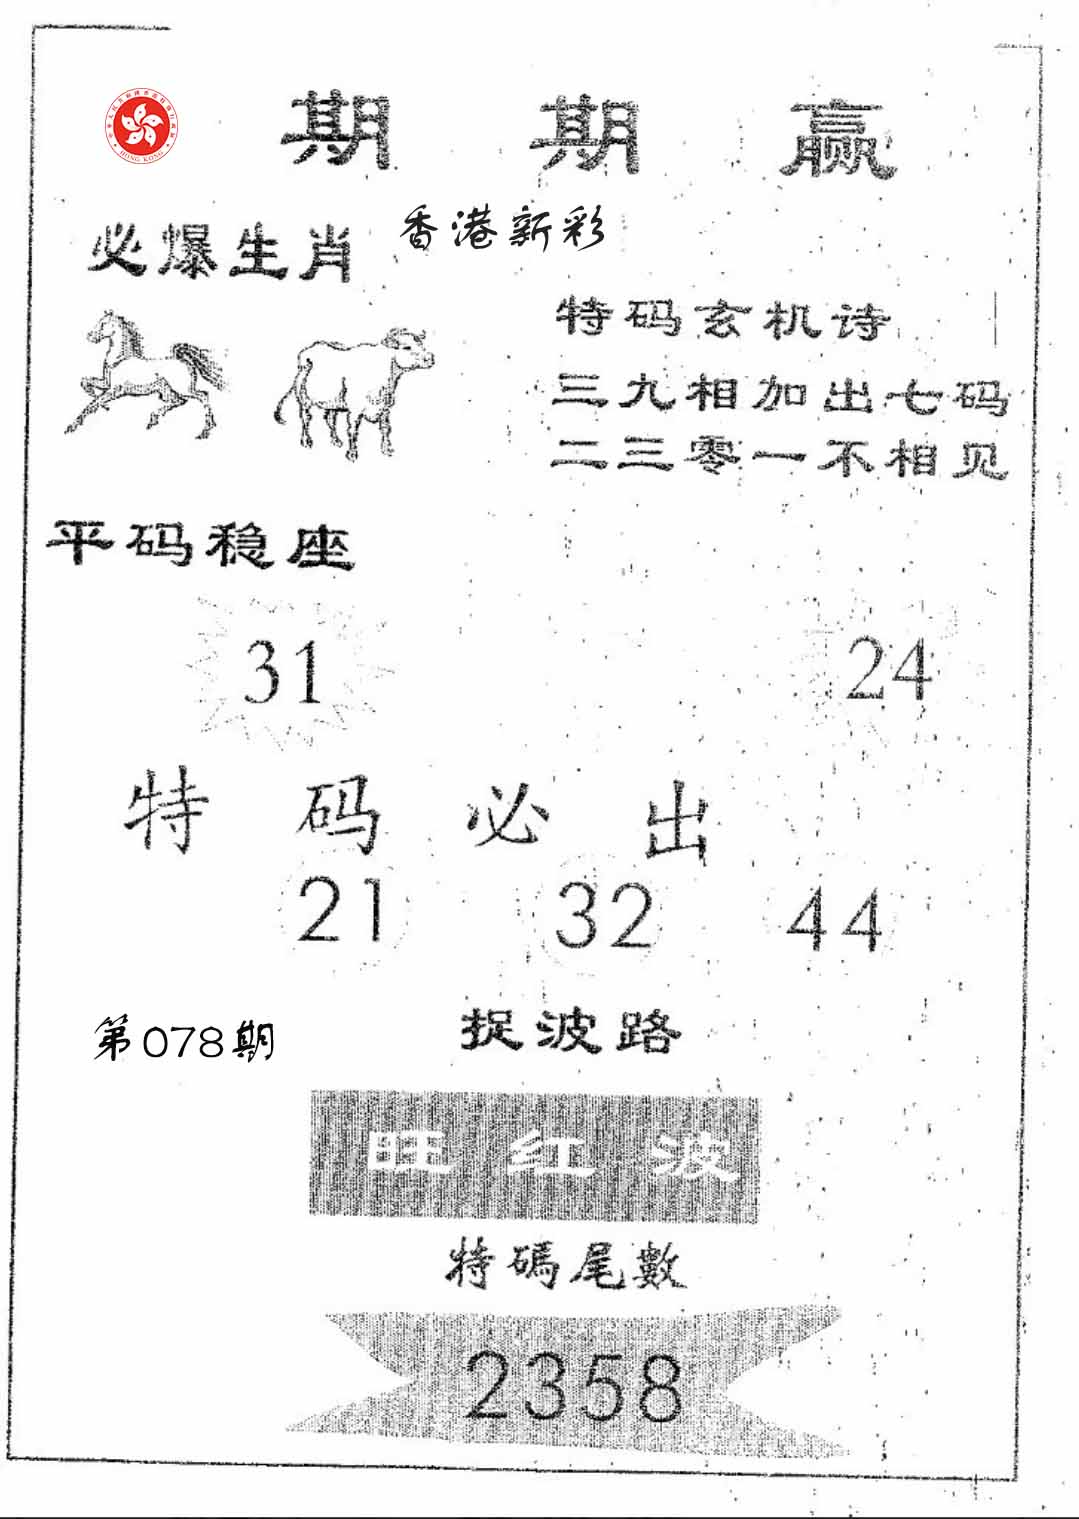 期期赢
香港新彩
必爆生肖
特码玄机诗
三九相加出七码
二三零一不相见
平码稳座
31 24
特码必出
21 32 44
第078期
捉波路
旺红波
特碼尾數
2358
HONG KONG